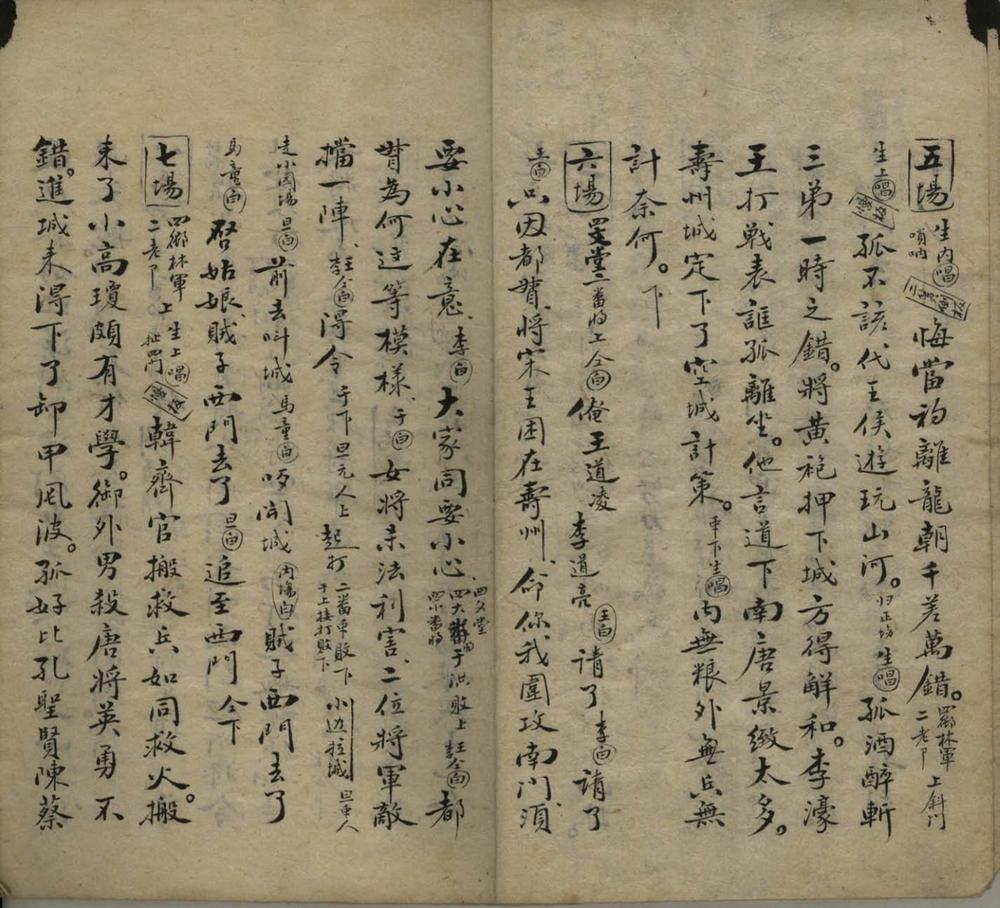 五場 生內唱 嗩吶 三黃倒板 悔當初離龍朝千差萬錯。四御林軍 二老丁 上斜門
生上唱 慢板 孤不該代王侯遊玩山河。归正坊生唱 孤酒醉斬
三弟一時之錯。將黃袍押下城方得解和。李濠
王打戰表誰孤離坐。他言道下南唐景緻太多。
壽州城定下了空城計策。車下生唱 內無粮外無兵無
計奈何。下
六場 四文堂二番將上仝白 俺王道凌 李道亮 王白 請了 李白 請了
王白 只因都督、將宋王困在壽州、命你我圍攻南門、須
要小心在意、李白 大家同要小心、四文堂 四大 四小番將 于洪敗上 王仝白 都
督為何這等模樣、于白 女將未法利害、二位將軍敵
擋一陣、王仝白 得令 于下 旦元人上 起打 二番車敗下 于上接打敗下 小边拉城 旦車人
走小圓場 旦白 前去叫城 馬童白 呔開城 內場白 賊子西門去了
馬童白 啓姑娘、賊子西門去了 旦白 追至西門 仝下
七場 四御林軍 二老丁 上 生上唱 扯四門 慢板 韓齊官搬救兵如同救火搬
來了小高瓊頗有才學。御外男殺唐將英勇不
錯。進城來得下了卸甲風波。孤好比孔聖賢陳蔡